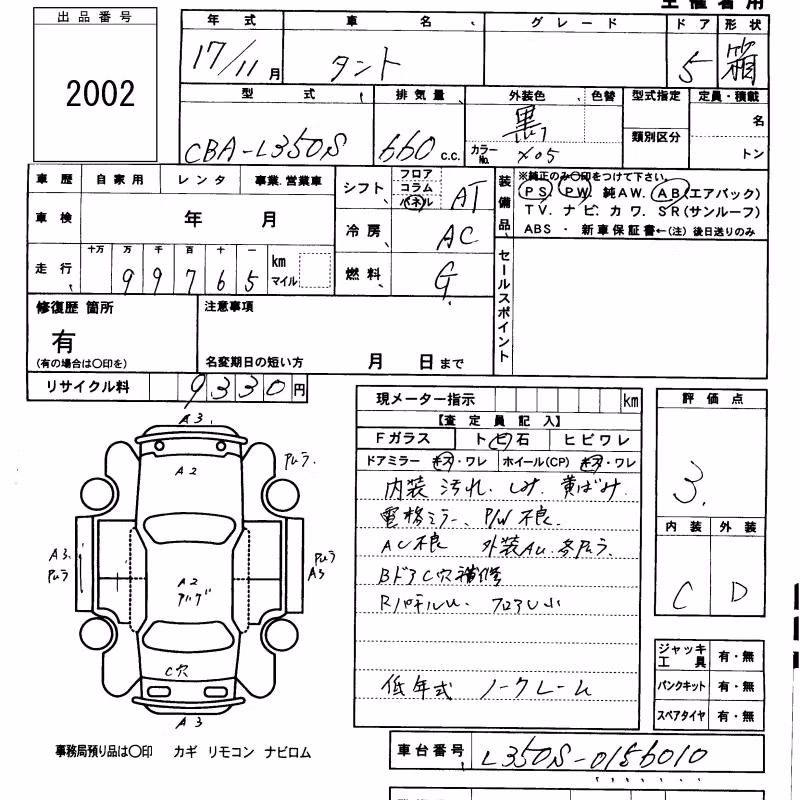 出品番号
2002
年式 車名 グレード ドア 形状
17/11月 タント 5 箱
型式 排気量 外装色 色替 型式指定 定員・積載
CBA-L350S 660 c.c. 黒 カラーNo. X05 類別区分 名 トン
車歴 自家用 レンタ 事業.営業車
シフト フロア コラム パネル AT
装備品 ※純正のみ○印をつけて下さい。
PS PW 純AW. AB(エアバック)
TV. ナビ. カワ. SR(サンルーフ)
ABS ・ 新車保証書←(注) 後日送りのみ
車検 年 月
冷房 AC
走行 十万 万 千 百 十 一 km マイル
99765
燃料 G.
セールスポイント
修復歴 箇所 注意事項
有
(有の場合は○印を) 名変期日の短い方 月 日まで
リサイクル料 9330円
現メーター指示 km
評価点
3.
【査定員記入】
Fガラス トビ石 ヒビワレ
ドアミラー キズ・ワレ ホイール(CP) キズ・ワレ
内装 汚れ. しみ. 黄ばみ.
電格ミラー、P/W 不良.
AC不良 外装AU.
BドアC穴補修
内装 外装
C D
低年式 ノークレーム
ジャッキ工具 有・無
パンクキット 有・無
スペアタイヤ 有・無
A3.
A2
A3.
A2
A3
C穴
A3
事務局預り品は○印 カギ リモコン ナビロム
車台番号 L350S-0156010